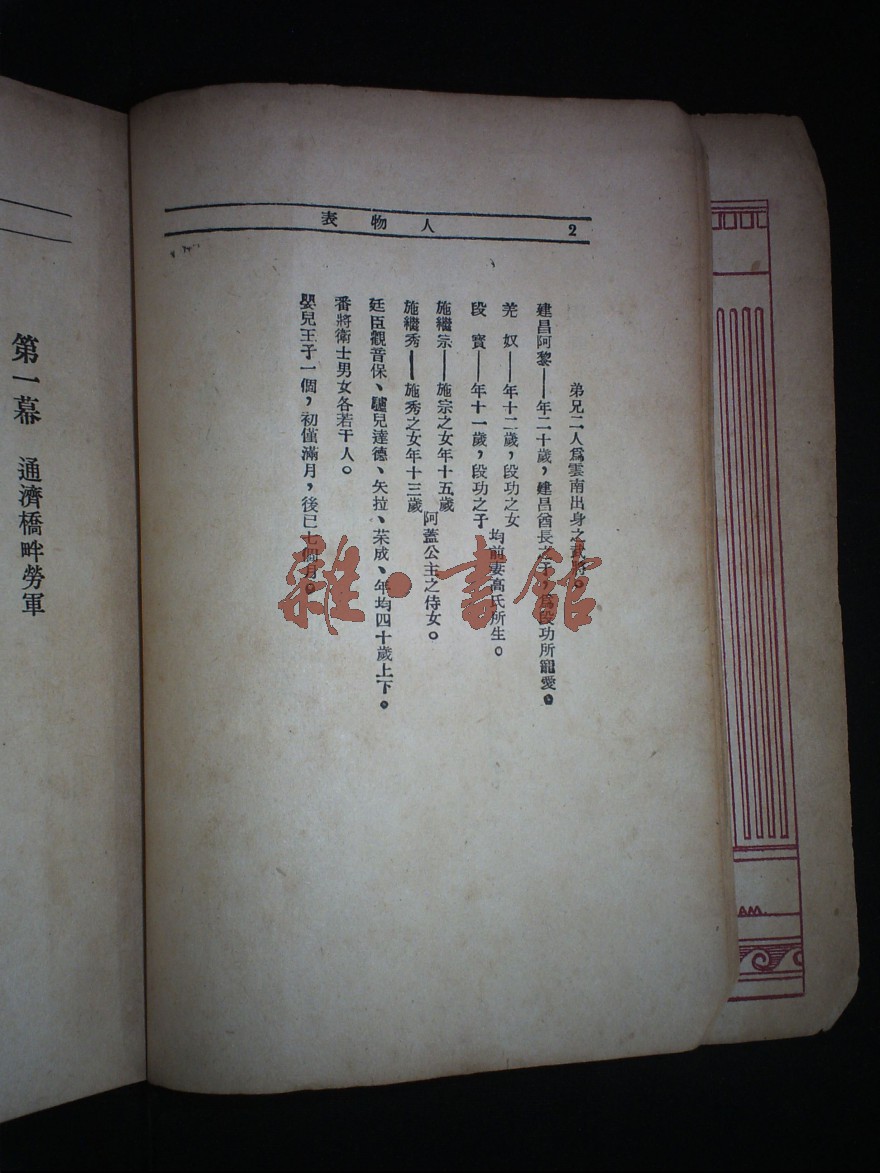 人物表
2
弟兄二人爲雲南出身之武將。
建昌阿黎——年二十歲，建昌酋長之子，爲段功所寵愛。
羌　奴——年十二歲，段功之女
段　寶——年十一歲，段功之子
均前妻高氏所生。
施繼宗——施宗之女年十五歲
施繼秀——施秀之女年十三歲
阿蓋公主之侍女。
廷臣觀音保、驢兒達德、矢拉、茱成、年均四十歲上下。
番將衛士男女各若干人。
嬰兒王子一個，初僅滿月，後已七個月。
第一幕　通濟橋畔勞軍
雜·書館
AM.